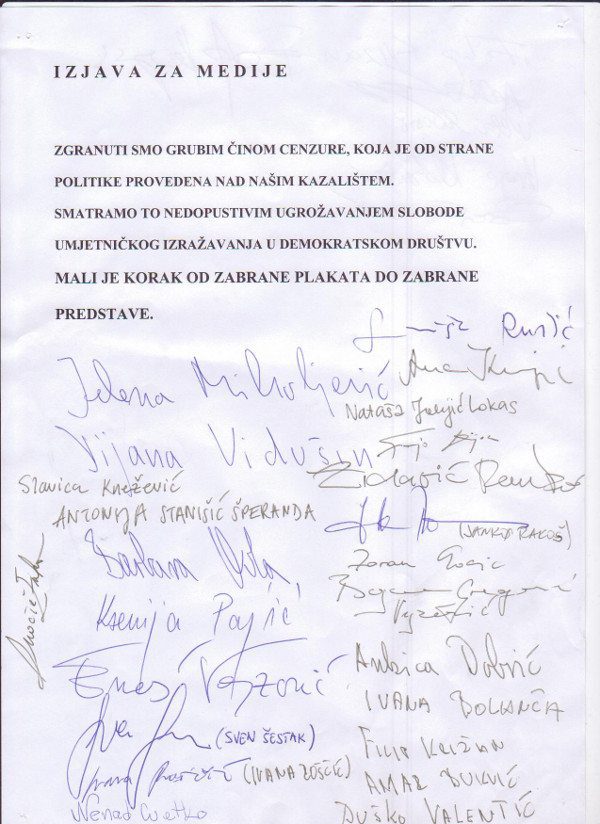 IZJAVA ZA MEDIJE
ZGRANUTI SMO GRUBIM ČINOM CENZURE, KOJA JE OD STRANE
POLITIKE PROVEDENA NAD NAŠIM KAZALIŠTEM.
SMATRAMO TO NEDOPUSTIVIM UGROŽAVANJEM SLOBODE
UMJETNIČKOG IZRAŽAVANJA U DEMOKRATSKOM DRUŠTVU.
MALI JE KORAK OD ZABRANE PLAKATA DO ZABRANE
PREDSTAVE.
Jelena Miholjević
Vijana Vidušin
Slavica Knežević
ANTONIJA STANIŠIĆ ŠPERANDA
Barbara
Ksenija Pajić
Enes Vejzović
(SVEN ŠESTAK)
(IVANA
Nenad Cvetko
Ana
Nataša Lokas
(JANKO RAKOŠ)
Zoran
Ankica Dobrić
IVANA BOLANČA
Filip Križan
AMAR BUKVIĆ
DUŠKO VALENTIĆ